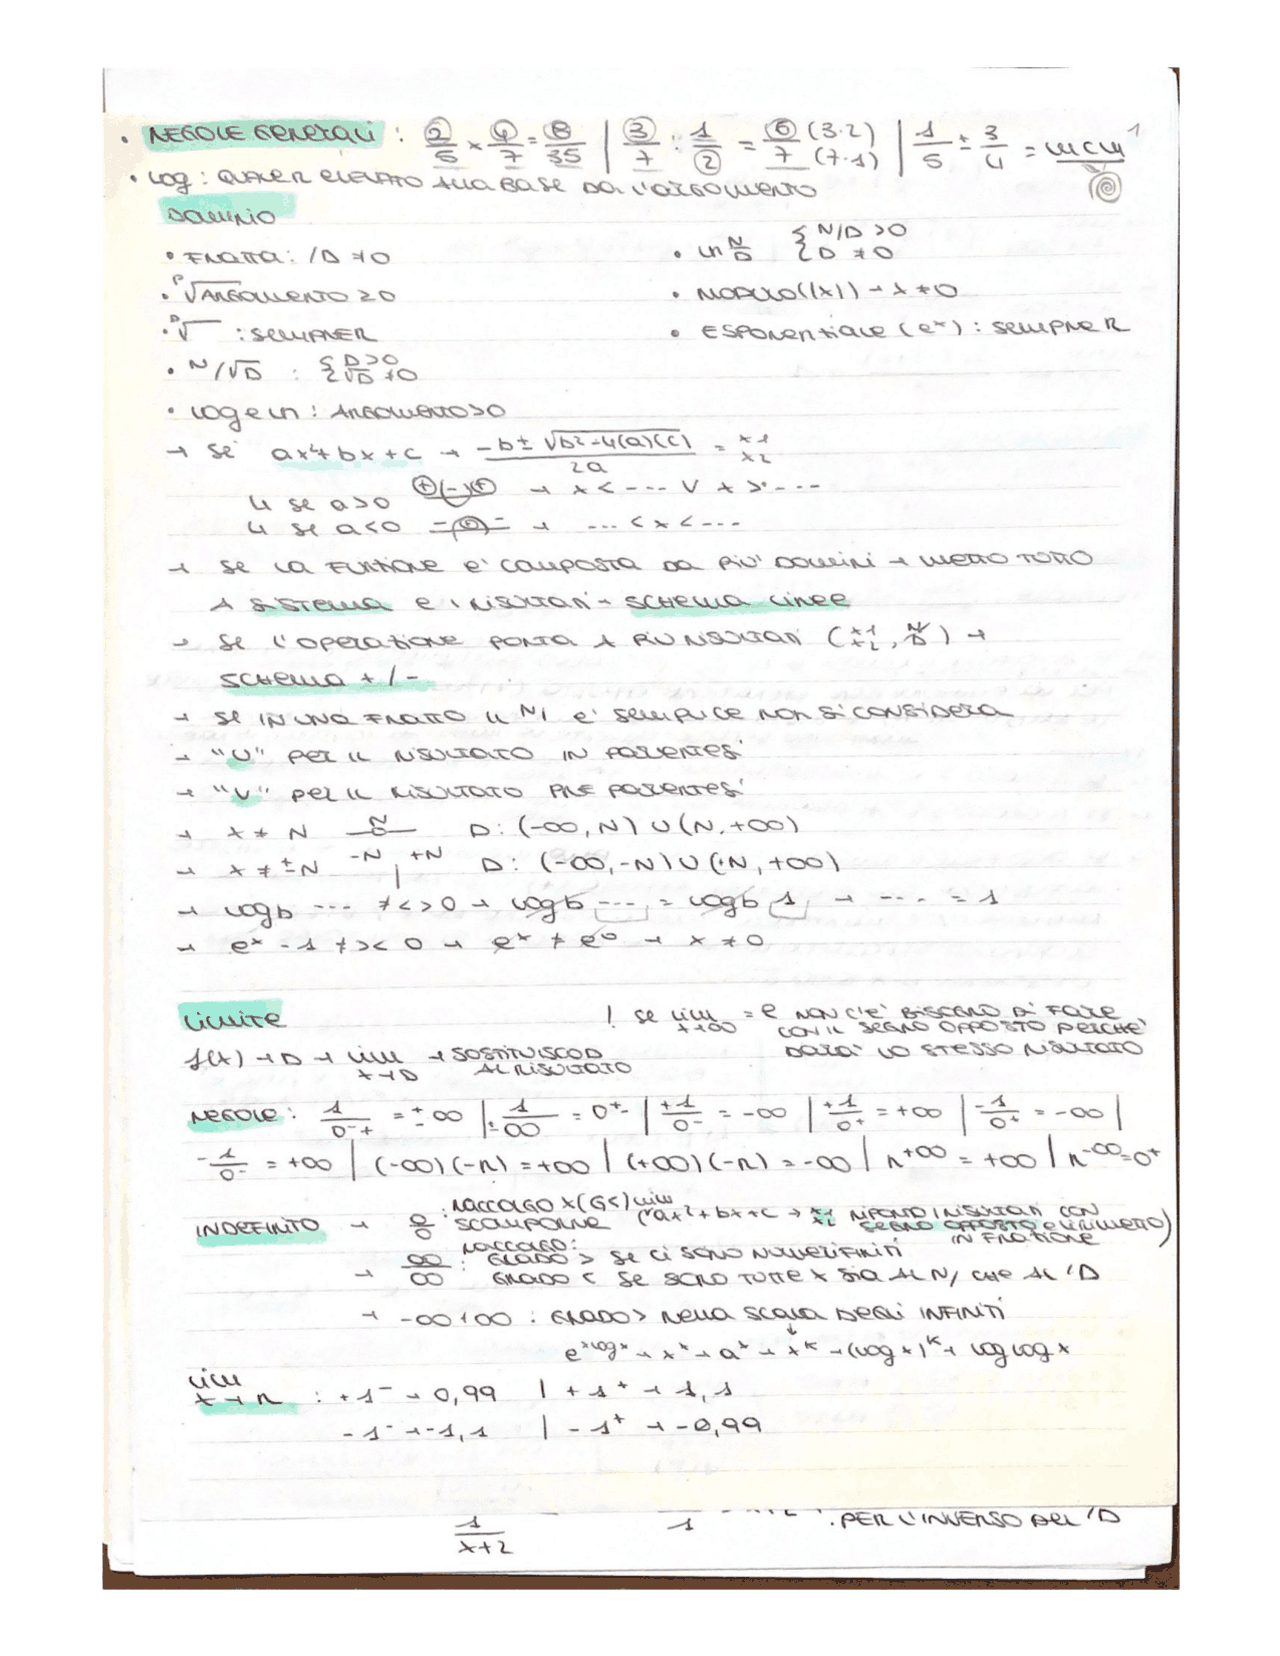 • REGOLE GENERALI : 2/5 × 4/7 = 8/35 | 3/7 : 1/2 = 6/7 (3·2) (7·1) | 1/5 ± 3/4 = mcm 1
• LOG : QUALE R ELEVATO ALLA BASE DA L'ARGOMENTO
DOMINIO
• FRATTA: /D ≠ 0 • ln N/D { N/D > 0 D ≠ 0
• P√ARGOMENTO ≥ 0 • MODULO (|x|) → x ≠ 0
• D√ : SEMPRE R • ESPONENZIALE (eˣ) : SEMPRE R
• N/√D : { D > 0 √D ≠ 0
• LOG e ln : ARGOMENTO > 0
→ SE ax²+bx+c → -b ± √b²-4(a)(c) / 2a = x1 x2
↳ se a>0 + (-) + → x < --- V x > ---
↳ se a<0 - (+) - → --- < x < ---
→ SE LA FUNZIONE E' COMPOSTA DA PIU' DOMINI → METTO TUTTO
A SISTEMA E I RISULTATI → SCHEMA LINEE
→ SE L'OPERAZIONE PORTA A PIU RISULTATI (x1 x2, N/D) →
SCHEMA + / -
→ SE IN UNA FRATTO IL N/ E' SEMPLICE NON SI CONSIDERA
→ "U" PER IL RISULTATO IN PARENTESI
→ "V" PER IL RISULTATO PRE PARENTESI
→ x ≠ N N D: (-∞, N) U (N, +∞)
→ x ≠ ±N -N | +N D: (-∞, -N) U (+N, +∞)
→ logb --- ≠ < > 0 → logb --- = logb 1 → --- = 1
→ eˣ - 1 ≠ > < 0 → eˣ ≠ e⁰ → x ≠ 0
LIMITE ! SE lim x→∞ = e NON C'E' BISOGNO DI FARE
CON IL SEGNO OPPOSTO PERCHE'
f(x) → D → lim x→D → SOSTITUISCO D AL RISULTATO DARA' LO STESSO RISULTATO
REGOLE : 1/0⁻⁺ = ±∞ | 1/±∞ = 0⁺⁻ | +1/0⁻ = -∞ | +1/0⁺ = +∞ | -1/0⁺ = -∞ |
-1/0⁻ = +∞ | (-∞)(-n) = +∞ | (+∞)(-n) = -∞ | n⁺∞ = +∞ | n⁻∞ = 0⁺
INDEFINITO → 0/0 : RACCOLGO x (G<) lim
SCOMPORRE (ax²+bx+c → x1 x2 RIPORTO I RISULTATI CON
SEGNO OPPOSTO e li rimetto) IN FRAZIONE
RACCOLGO:
→ ∞/∞ : GRADO > SE CI SONO NUMERI FINITI
GRADO < SE SONO TUTTE x SIA AL N/ CHE AL /D
→ -∞+∞ : GRADO > NELLA SCALA DEGLI INFINITI
eˣˡᵒᵍˣ → xˣ → aˣ → xᴷ → (log x)ᴷ → log log x
lim x→n : +1⁻ → 0,99 | +1⁺ → 1,1
-1⁻ → -1,1 | -1⁺ → -0,99
1/x+2 1 . PER L'INVERSO DEL /D